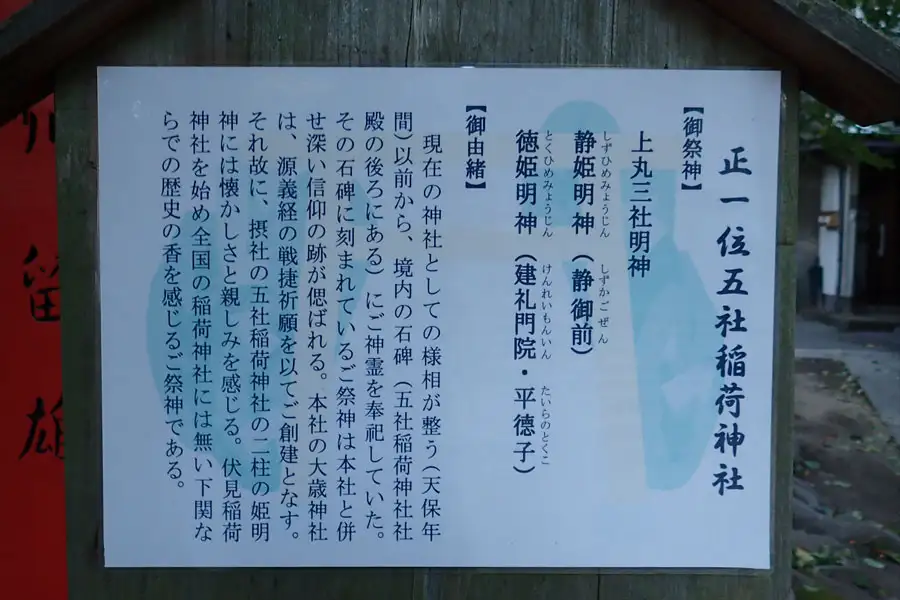 正一位五社稲荷神社
【御祭神】
上丸三社明神
しずひめみょうじん しずかごぜん
静姫明神（静御前）
とくひめみょうじん けんれいもんいん たいらのとくこ
徳姫明神（建礼門院・平徳子）
【御由緒】
現在の神社としての様相が整う（天保年
間）以前から、境内の石碑（五社稲荷神社社
殿の後ろにある）にご神霊を奉祀していた。
その石碑に刻まれているご祭神は本社と併
せ深い信仰の跡が偲ばれる。本社の大歳神社
は、源義経の戦捷祈願を以てご創建となす。
それ故に、摂社の五社稲荷神社の二柱の姫明
神には懐かしさと親しみを感じる。伏見稲荷
神社を始め全国の稲荷神社には無い下関な
らでの歴史の香を感じるご祭神である。
留雄